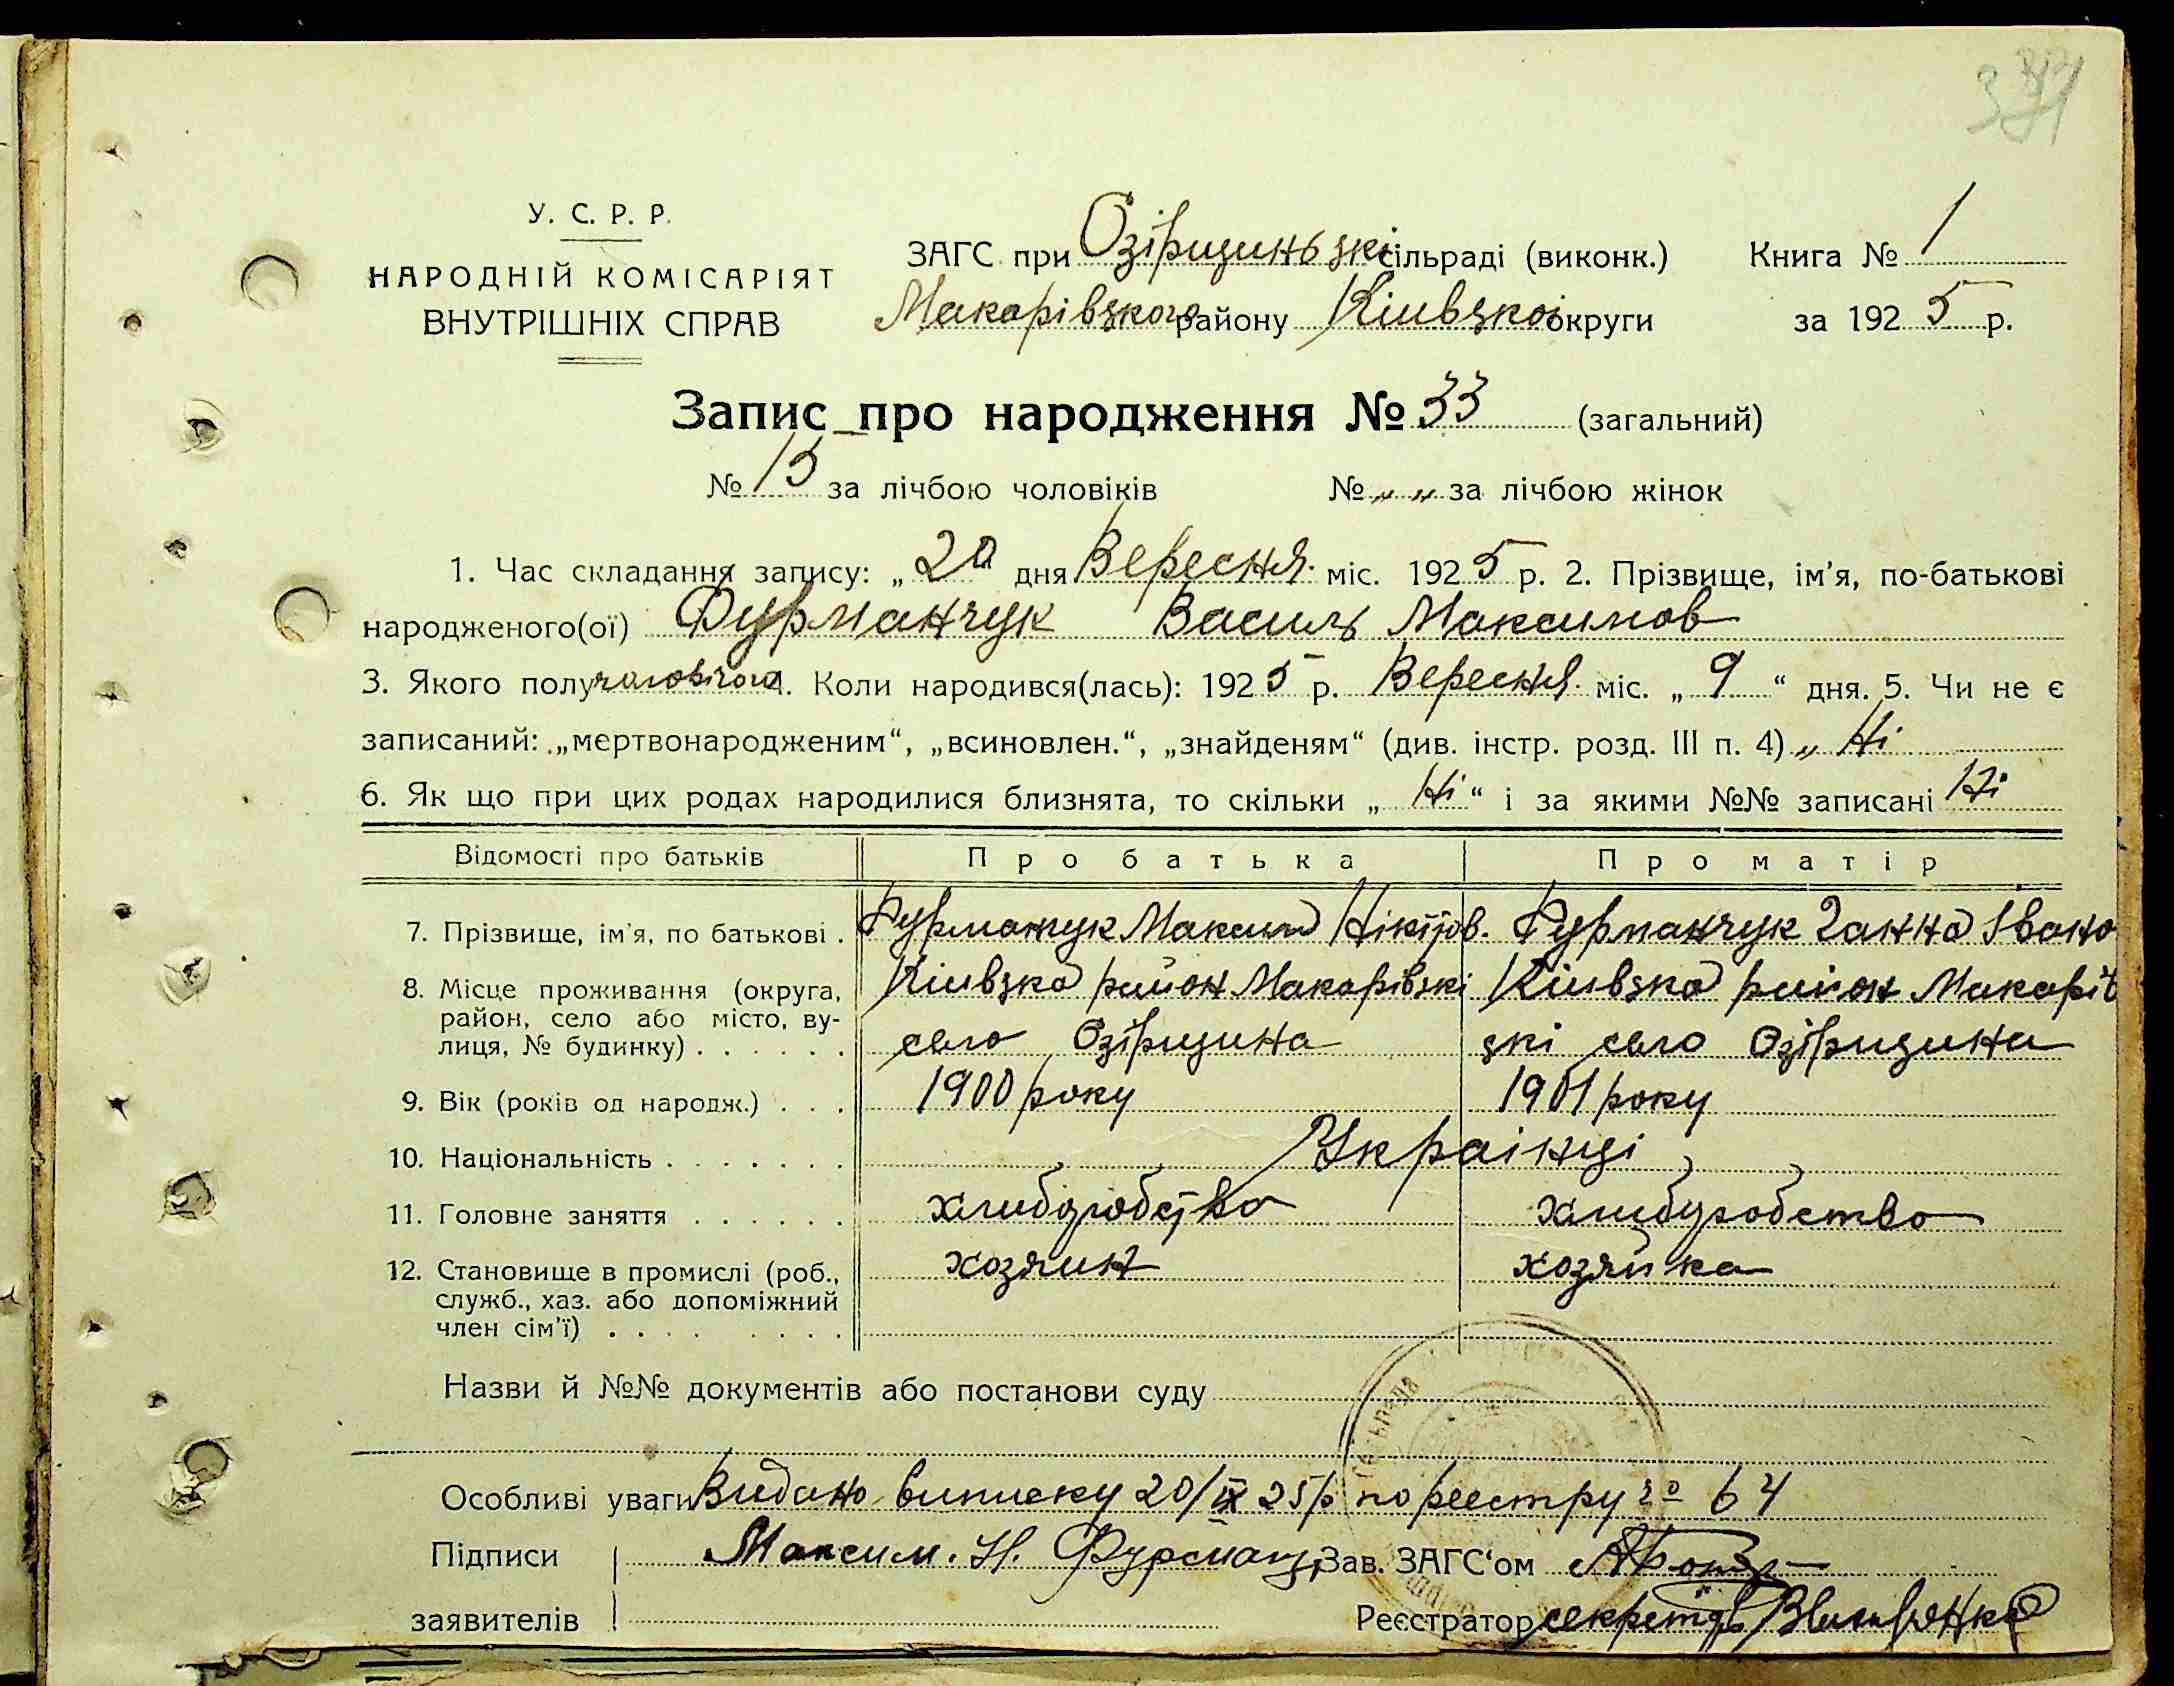 371
У. С. Р. Р.
НАРОДНІЙ КОМІСАРІЯТ
ВНУТРІШНІХ СПРАВ
ЗАГС при Озірщиньзкі сільраді (виконк.) Книга № 1
Макарівзкого району Кіивзкоі округи за 1925 р.
Запис про народження № 33 (загальний)
№ 15 за лічбою чоловіків № „ „ за лічбою жінок
1. Час складання запису: „20 дня Вересня міс. 1925 р. 2. Прізвище, ім'я, по-батькові
народженого(ої) Фурманчук Василь Максимов
3. Якого полу чоловічого 4. Коли народився(лась): 1925 р. Вересня міс. „ 9 “ дня. 5. Чи не є
записаний: „мертвонародженим“, „всиновлен.“, „знайденям“ (див. інстр. розд. III п. 4) „ Ні
6. Як що при цих родах народилися близнята, то скільки „ Ні “ і за якими №№ записані Ні
Відомості про батьків Про батька Про матір
7. Прізвище, ім'я, по батькові . Фурманчук Максим Нікіфов. Фурманчук Ганна Івано
8. Місце проживання (округа, Кіивзка район Макарівзкі Кіивзка район Макарів
район, село або місто, ву- село Озірщина зкі село Озірщина
лиця, № будинку) . . . . . .
9. Вік (років од народж.) . . . 1900 року 1901 року
10. Національність . . . . . . . Украінці
11. Головне заняття . . . . . . хлиборобство хлиборобство
12. Становище в промислі (роб., хозяин хозяйка
служб., хаз. або допоміжний
член сім'ї) . . . . . . . .
Назви й №№ документів або постанови суду
Особливі уваги Видано виписку 20/IX 25 р по реестру № 64
Підписи Максим. Н. Фурманч Зав. ЗАГС‘ом
заявителів Реєстратор секретар